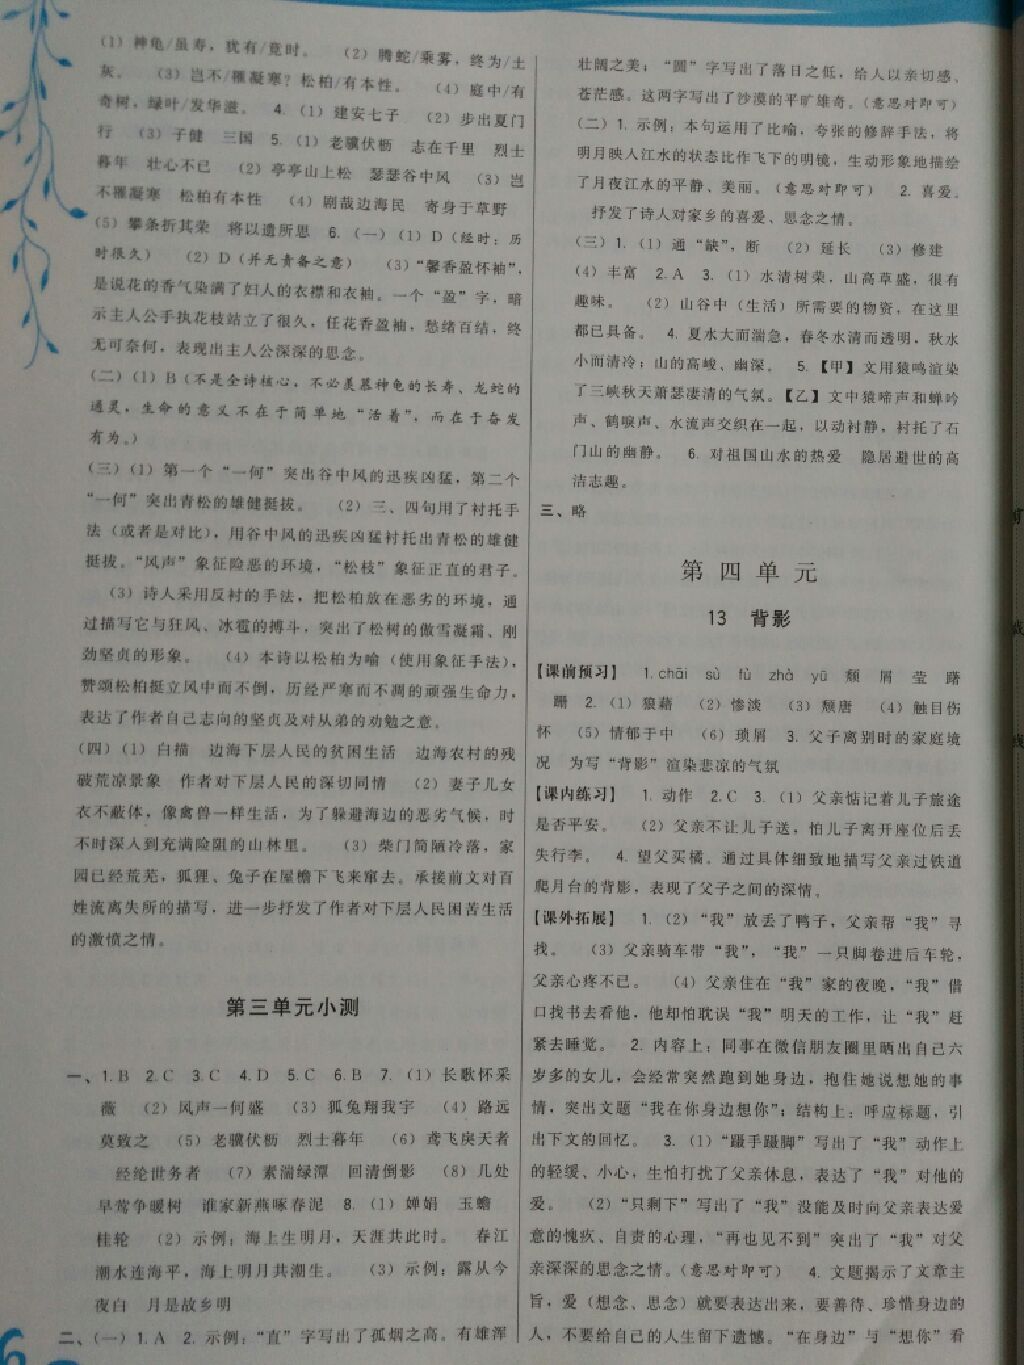 (1) 神龟/虽寿，犹有/竟时。　(2) 腾蛇/乘雾，终为/土
灰。　(3) 岂不/罹凝寒？松柏/有本性。　(4) 庭中/有
奇树，绿叶/发华滋。　4. (1) 建安七子　(2) 步出夏门
行　(3) 子健　三国　5. (1) 老骥伏枥　志在千里　烈士
暮年　壮心不已　(2) 亭亭山上松　瑟瑟谷中风　(3) 岂
不罹凝寒　松柏有本性　(4) 剧哉边海民　寄身于草野
(5) 攀条折其荣　将以遗所思　6. (一) (1) D (经时：历
时很久)　(2) D (并无责备之意)　(3) “馨香盈怀袖”，
是说花的香气染满了妇人的衣襟和衣袖。一个“盈”字，暗
示主人公手执花枝站立了很久，任花香盈袖，愁绪百结，终
无可奈何，表现出主人公深深的思念。
(二) (1) B (不是全诗核心，不必羡慕神龟的长寿、龙蛇的
通灵，生命的意义不在于简单地“活着”，而在于奋发
有为。)
(三) (1) 第一个“一何”突出谷中风的迅疾凶猛，第二个
“一何”突出青松的雄健挺拔。　(2) 三、四句用了衬托手
法 (或者是对比)，用谷中风的迅疾凶猛衬托出青松的雄健
挺拔。“风声”象征险恶的环境，“松枝”象征正直的君子。
(3) 诗人采用反衬的手法，把松柏放在恶劣的环境，通
过描写它与狂风、冰雹的搏斗，突出了松树的傲雪凝霜、刚
劲坚贞的形象。　(4) 本诗以松柏为喻 (使用象征手法)，
赞颂松柏挺立风中而不倒，历经严寒而不凋的顽强生命力，
表达了作者自己志向的坚贞及对从弟的劝勉之意。
(四) (1) 白描　边海下层人民的贫困生活　边海农村的残
破荒凉景象　作者对下层人民的深切同情　(2) 妻子儿女
衣不蔽体，像禽兽一样生活，为了躲避海边的恶劣气候，时
不时深入到充满险阻的山林里。　(3) 柴门简陋冷落，家
园已经荒芜，狐狸、兔子在屋檐下飞来窜去。承接前文对百
姓流离失所的描写，进一步抒发了作者对下层人民困苦生活
的激愤之情。
第三单元小测
一、1. B　2. C　3. C　4. D　5. C　6. B　7. (1) 长歌怀采
薇　(2) 风声一何盛　(3) 狐兔翔我宇　(4) 路远
莫致之　(5) 老骥伏枥　烈士暮年　(6) 鸢飞戾天者
经纶世务者　(7) 素湍绿潭　回清倒影　(8) 几处
早莺争暖树　谁家新燕啄春泥　8. (1) 婵娟　玉蟾
桂轮　(2) 示例：海上生明月，天涯共此时。　春江
潮水连海平，海上明月共潮生。　(3) 示例：露从今
夜白　月是故乡明
二、(一) 1. A　2. 示例：“直”字写出了孤烟之高。有雄浑
壮阔之美；“圆”字写出了落日之低，给人以亲切感、
苍茫感。这两字写出了沙漠的平旷雄奇。(意思对即可)
(二) 1. 示例：本句运用了比喻，夸张的修辞手法，将
明月映入江水的状态比作飞下的明镜，生动形象地描绘
了月夜江水的平静、美丽。(意思对即可)　2. 喜爱。
抒发了诗人对家乡的喜爱、思念之情。
(三) 1. (1) 通“缺”，断　(2) 延长　(3) 修建
(4) 丰富　2. A　3. (1) 水清树荣，山高草盛，很有
趣味。　(2) 山谷中 (生活) 所需要的物资，在这里
都已具备。　4. 夏水大而湍急，春冬水清而透明，秋水
小而清冷；山的高峻、幽深。　5. 【甲】文用猿鸣渲染
了三峡秋天萧瑟凄清的气氛。【乙】文中猿啼声和蝉吟
声、鹤唳声、水流声交织在一起，以动衬静，衬托了石
门山的幽静。　6. 对祖国山水的热爱　隐居避世的高
洁志趣。
三、略
第四单元
13　背影
【课前预习】　1. chāi　sù　fù　zhà　yū　颓　屑　莹　蹰
珊　2. (1) 狼藉　(2) 惨淡　(3) 颓唐　(4) 触目伤
怀　(5) 情郁于中　(6) 琐屑　3. 父子离别时的家庭境
况　为写“背影”渲染悲凉的气氛
【课内练习】　1. 动作　2. C　3. (1) 父亲惦记着儿子旅途
是否平安。　(2) 父亲不让儿子送，怕儿子离开座位后丢
失行李。　4. 望父买橘。通过具体细致地描写父亲过铁道
爬月台的背影，表现了父子之间的深情。
【课外拓展】　1. (2) “我”放丢了鸭子，父亲帮“我”寻
找。　(3) 父亲骑车带“我”，“我”一只脚卷进后车轮，
父亲心疼不已。　(4) 父亲住在“我”家的夜晚，“我”借
口找书去看他，他却怕耽误“我”明天的工作，让“我”赶
紧去睡觉。　2. 内容上：同事在微信朋友圈里晒出自己六
岁多的女儿，会经常突然跑到她身边，抱住她说想她的事
情，突出文题“我在你身边想你”；结构上：呼应标题，引
出下文的回忆。　3. (1) “蹑手蹑脚”写出了“我”动作上
的轻缓、小心，生怕打扰了父亲休息，表达了“我”对他的
爱。　(2) “只剩下”写出了“我”没能及时向父亲表达爱
意的愧疚、自责的心理，“再也见不到”突出了“我”对父
亲深深的思念之情。(意思对即可)　4. 文题揭示了文章主
旨，爱 (想念、思念) 就要表达出来，要善待、珍惜身边的
人，不要给自己的人生留下遗憾。“在身边”与“想你”看